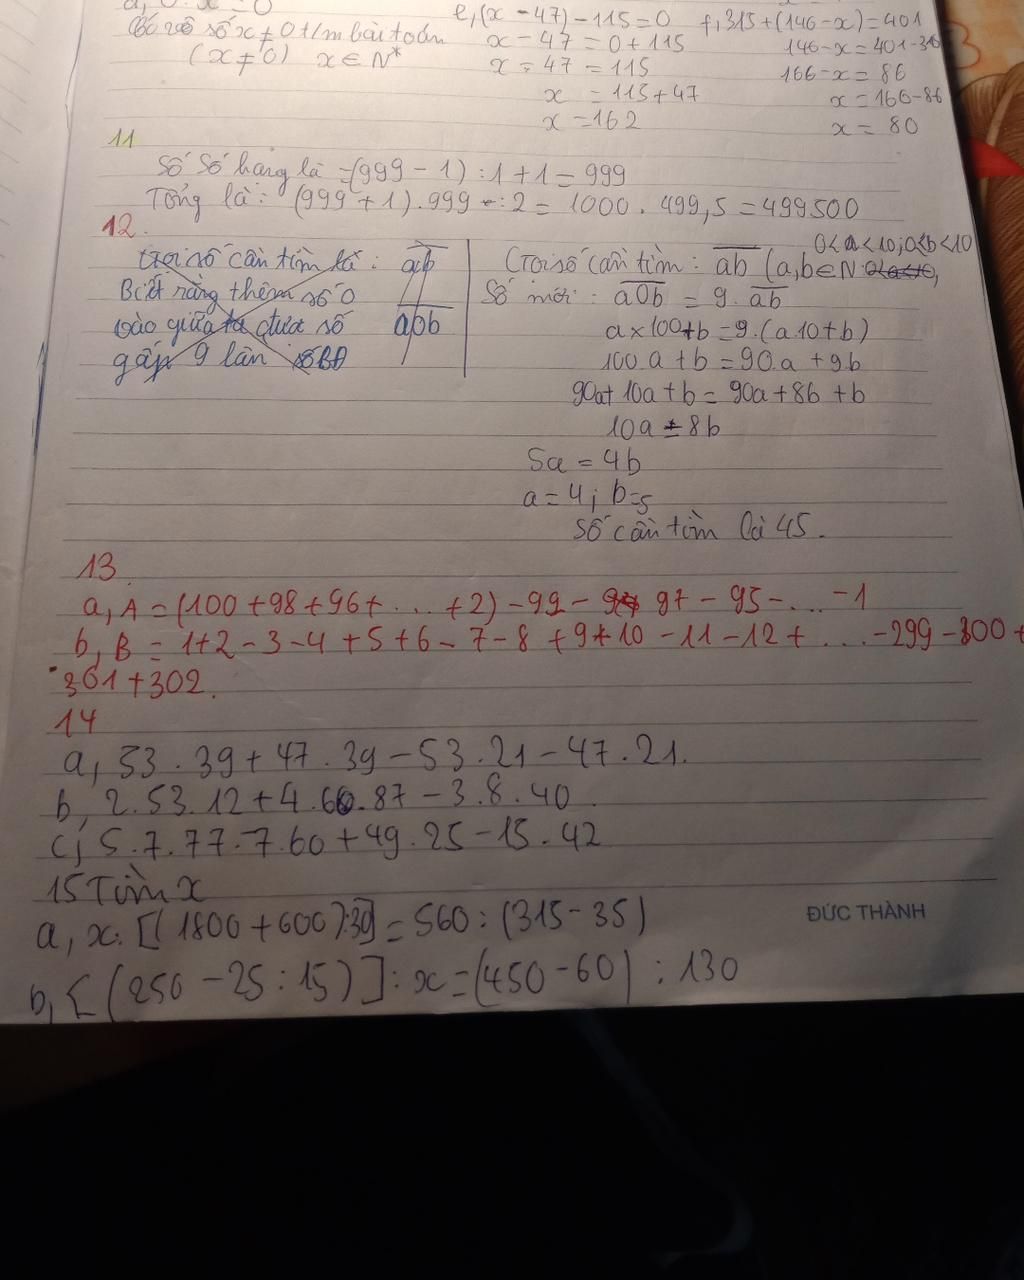 0 . x = 0
Có vô số x ≠ 0 t/m bài toán
(x ≠ 0) x ∈ N*
e, (x - 47) - 115 = 0
x - 47 = 0 + 115
x - 47 = 115
x = 115 + 47
x = 162
f, 315 + (146 - x) = 401
146 - x = 401 - 315
166 - x = 86
x = 166 - 86
x = 80
11
Số số hạng là = (999 - 1) : 1 + 1 = 999
Tổng là : (999 + 1) . 999 : 2 = 1000 . 499,5 = 499500
12.
Gọi số cần tìm là : ab
Biết rằng thêm số 0
vào giữa ta được số a0b
gấp 9 lần
0 < a < 10; 0 < b < 10
Gọi số cần tìm : ab (a, b ∈ N
Số mới : a0b = 9 . ab
a x 100 + b = 9 . (a . 10 + b)
100 . a + b = 90 . a + 9b
90a + 10a + b = 90a + 8b + b
10a = 8b
5a = 4b
a = 4; b = 5
Số cần tìm là 45.
13
a, A = (100 + 98 + 96 + ... + 2) - 99 - 97 - 95 - ... - 1
b, B = 1 + 2 - 3 - 4 + 5 + 6 - 7 - 8 + 9 + 10 - 11 - 12 + ... - 299 - 300 +
301 + 302.
14
a, 53 . 39 + 47 . 39 - 53 . 21 - 47 . 21.
b, 2 . 53 . 12 + 4 . 60 . 87 - 3 . 8 . 40
c, 5 . 7 . 77 - 7 . 60 + 49 . 25 - 15 . 42
15 Tìm x
a, x : [(1800 + 600) : 30] = 560 : (315 - 35)
b, [(250 - 25 : 15)] : x = (450 - 60) : 130
ĐỨC THÀNH